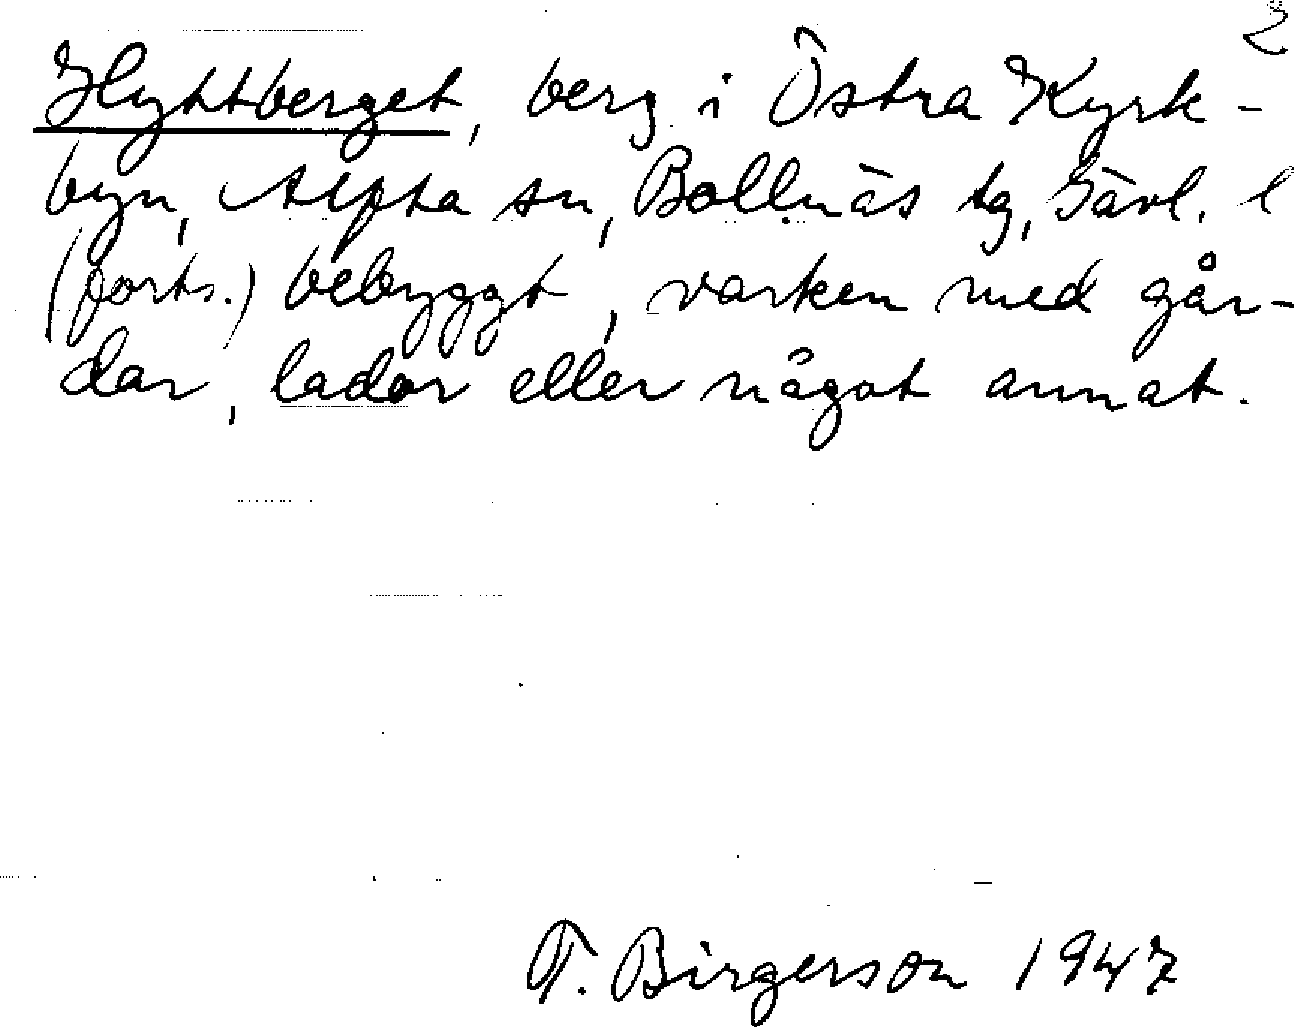 2
Hyttberget, berg i Östra Kyrk-
byn, Alfta sn, Bollnäs tg, Gävl. l
(forts.) bebyggt, varken med går-
dar, lador eller något annat.
T. Birgerson 1947